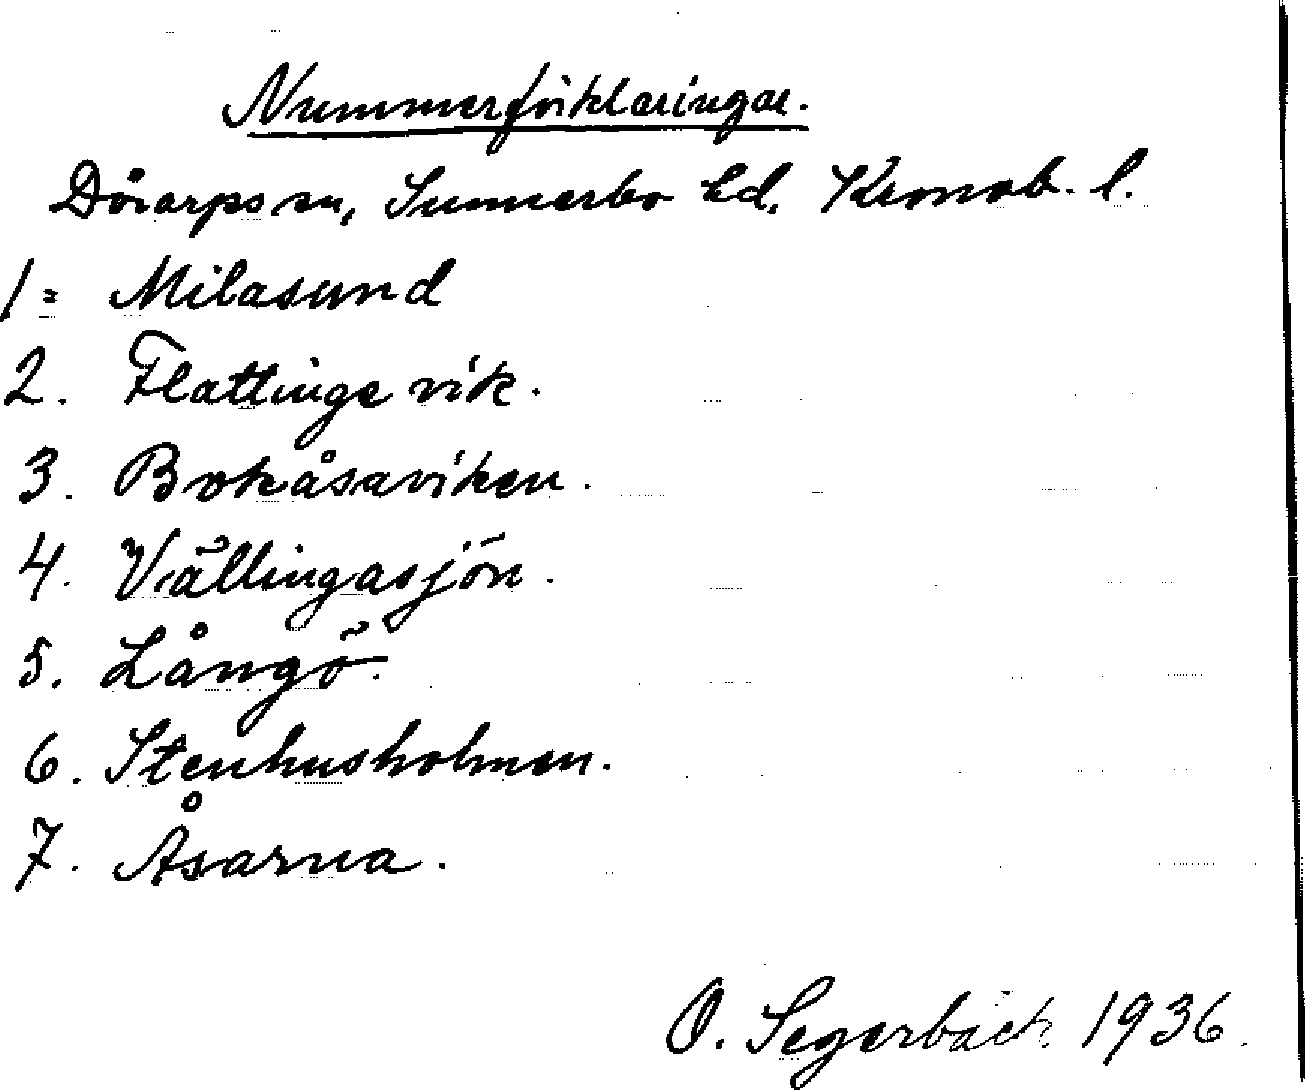 Nummerförklaringar.
Dörarps sn, Sunnerbo hd. Kronob. l.
1 = Milasund
2. Flattinge vik.
3. Bokåsaviken.
4. Vällingasjön.
5. Långö.
6. Stenhusholmen.
7. Åsarna.
O. Segerbäck 1936.